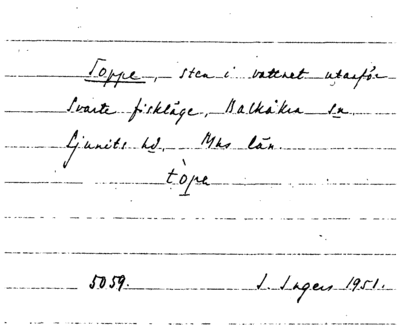 Toppe, sten i vattnet utanför
Svarte fiskläge, Balkåkra sn
Ljunits hd, Mhs län.
tòpe
5059. I. Ingers 1951.